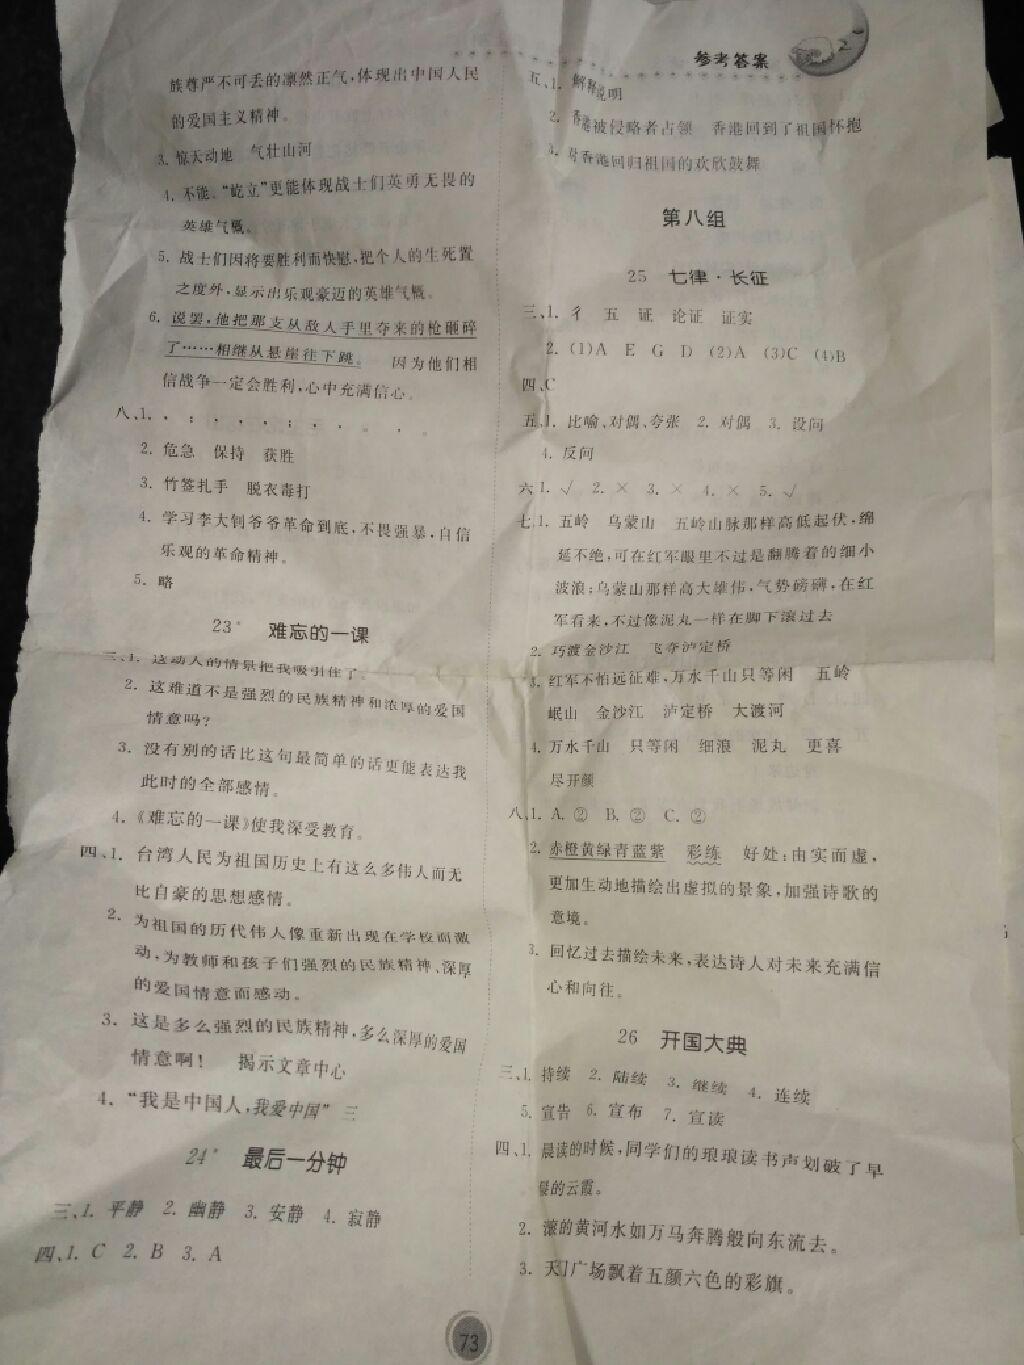 参考答案
族尊严不可丢的凛然正气,体现出中国人民
的爱国主义精神。
3. 惊天动地　气壮山河
4. 不能。“屹立”更能体现战士们英勇无畏的
英雄气概。
5. 战士们因将要胜利而快慰,把个人的生死置
之度外,显示出乐观豪迈的英雄气概。
6. 说罢,他把那支从敌人手里夺来的枪砸碎
了……相继从悬崖往下跳。　因为他们相
信战争一定会胜利,心中充满信心。
八、1. , ; , , ; , , 。 , 。
2. 危急　保持　获胜
3. 竹签扎手　脱衣毒打
4. 学习李大钊爷爷革命到底,不畏强暴,自信
乐观的革命精神。
5. 略
23* 难忘的一课
三、1. 这动人的情景把我吸引住了。
2. 这难道不是强烈的民族精神和浓厚的爱国
情意吗?
3. 没有别的话比这句最简单的话更能表达我
此时的全部感情。
4.《难忘的一课》使我深受教育。
四、1. 台湾人民为祖国历史上有这么多伟人而无
比自豪的思想感情。
2. 为祖国的历代伟人像重新出现在学校而激
动,为教师和孩子们强烈的民族精神、深厚
的爱国情意而感动。
3. 这是多么强烈的民族精神,多么深厚的爱国
情意啊!　揭示文章中心
4. “我是中国人,我爱中国”　三
24* 最后一分钟
三、1. 平静　2. 幽静　3. 安静　4. 寂静
四、1. C　2. B　3. A
五、1. 解释说明
2. 香港被侵略者占领　香港回到了祖国怀抱
3. 对香港回归祖国的欢欣鼓舞
第八组
25 七律·长征
三、1. 彳　五　证　论证　证实
2. (1)A　E　G　D　(2)A　(3)C　(4)B
四、C
五、1. 比喻、对偶、夸张　2. 对偶　3. 设问
4. 反问
六、1. √　2. ×　3. ×　4. ×　5. √
七、1. 五岭　乌蒙山　五岭山脉那样高低起伏,绵
延不绝,可在红军眼里不过是翻腾着的细小
波浪;乌蒙山那样高大雄伟,气势磅礴,在红
军看来,不过像泥丸一样在脚下滚过去
2. 巧渡金沙江　飞夺泸定桥
3. 红军不怕远征难,万水千山只等闲　五岭
岷山　金沙江　泸定桥　大渡河
4. 万水千山　只等闲　细浪　泥丸　更喜
尽开颜
八、1. A. ②　B. ②　C. ②
2. 赤橙黄绿青蓝紫　彩练　好处:由实而虚,
更加生动地描绘出虚拟的景象,加强诗歌的
意境。
3. 回忆过去描绘未来,表达诗人对未来充满信
心和向往。
26 开国大典
三、1. 持续　2. 陆续　3. 继续　4. 连续
5. 宣告　6. 宣布　7. 宣读
四、1. 晨读的时候,同学们的琅琅读书声划破了早
的云霞。
2. 滚的黄河水如万马奔腾般向东流去。
3. 天门广场飘着五颜六色的彩旗。
73